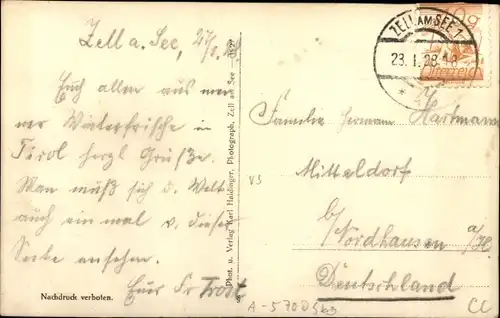 Zell a. See, 27/1. 28
Euch allen aus mei
ner Winterfrische in
Tirol herzl Grüße.
Man muß sich d. Welt
auch ein mal v. dieser
Seite ansehen.
Euer Fr Trost
Nachdruck verboten.
Phot. u. Verlag Karl Haidinger, Photograph, Zell am See
ZELL AM SEE 1
23.1.28
Österreich
Familie Hermann Hartmann
Mitteldorf
b/Nordhausen a/H.
Deutschland
V3
A-5700
CC